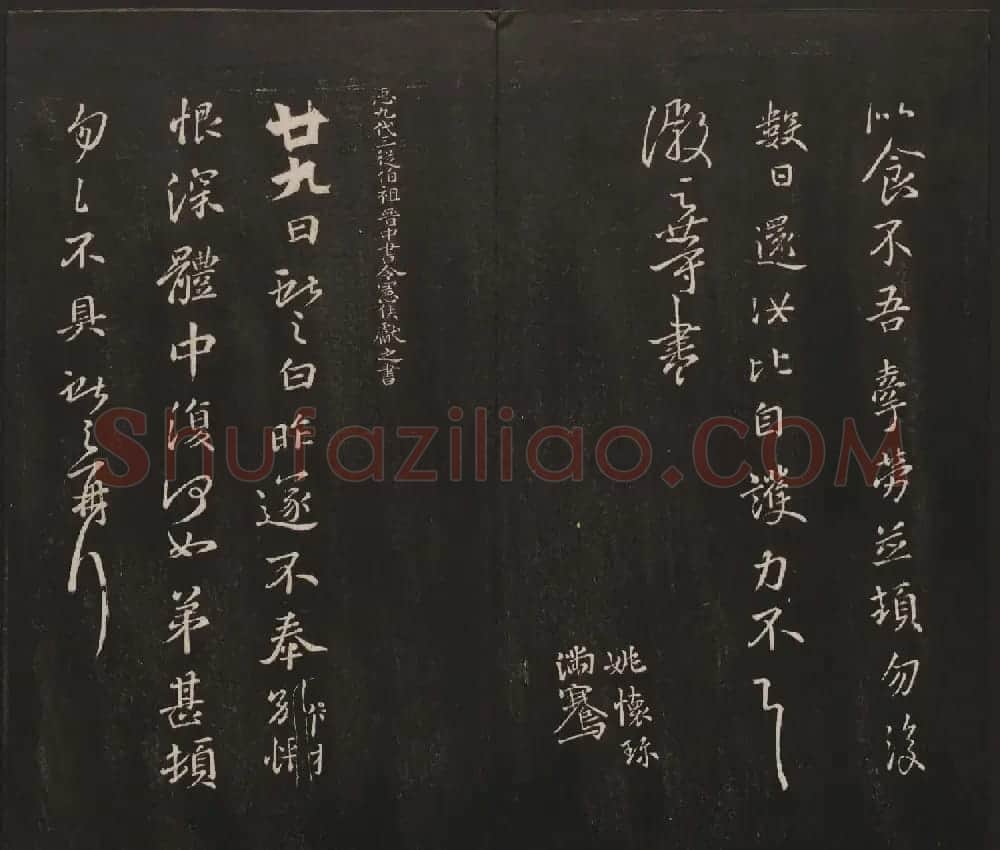 似食不吾牽勞並頓勿復
數日還汝比自護力不具
徽之等書
姚懷珍
滿騫
臣九代三從伯祖晉中書令憲侯獻之書
廿九日獻之白昨遂不奉別悵
恨深體中復何如弟甚頓
勿勿不具獻之再拜
Shufaziliao.COM